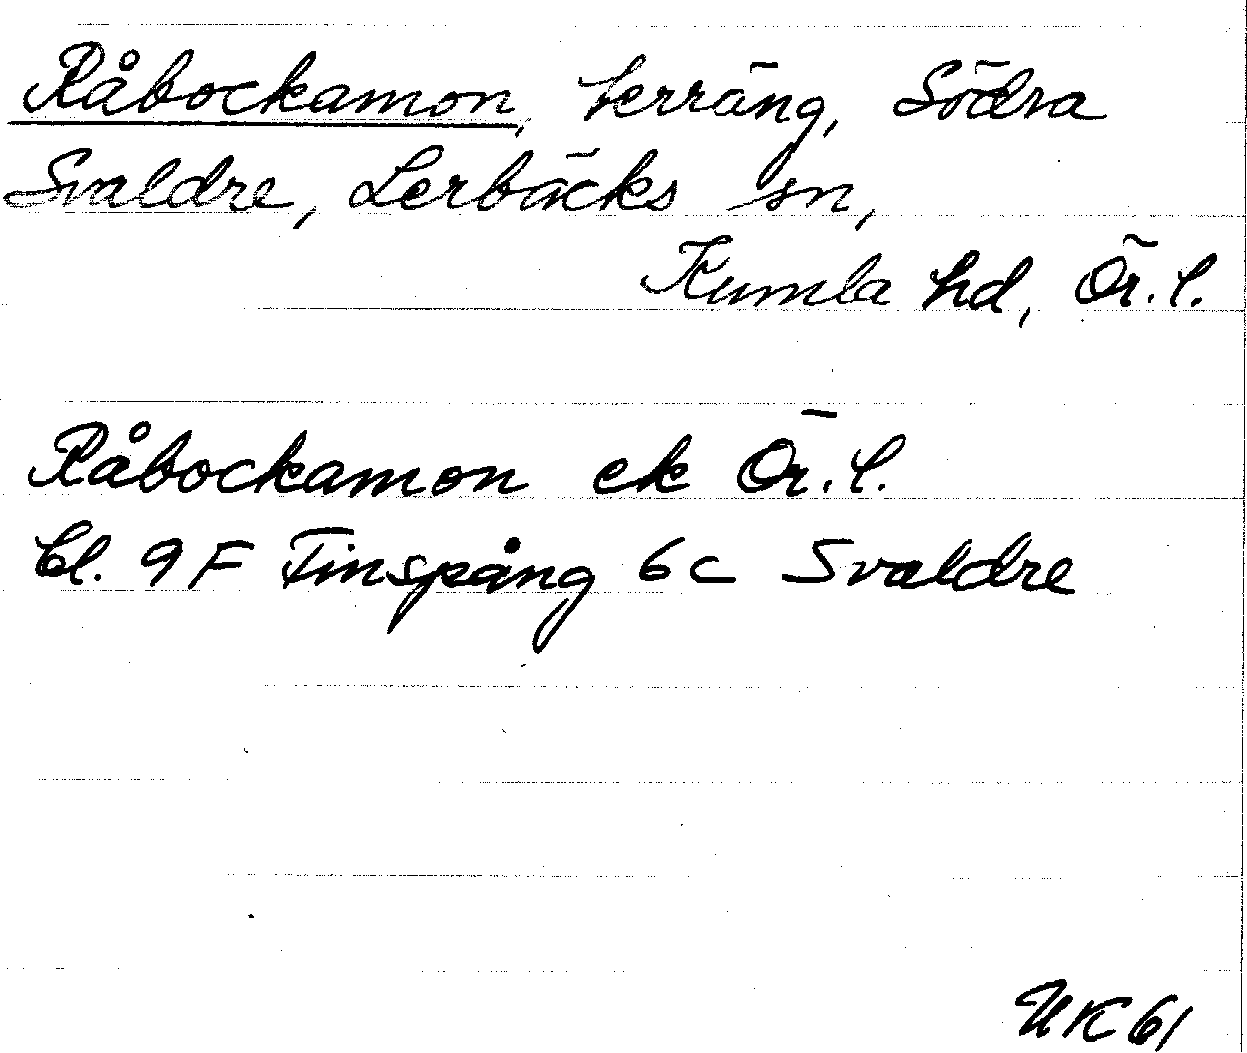 Råbockamon, terräng, Södra
Svaldre, Lerbäcks sn,
Kumla hd, Ör. l.
Råbockamon ek Ör. l.
bl. 9 F Finspång 6 c Svaldre
UK 61